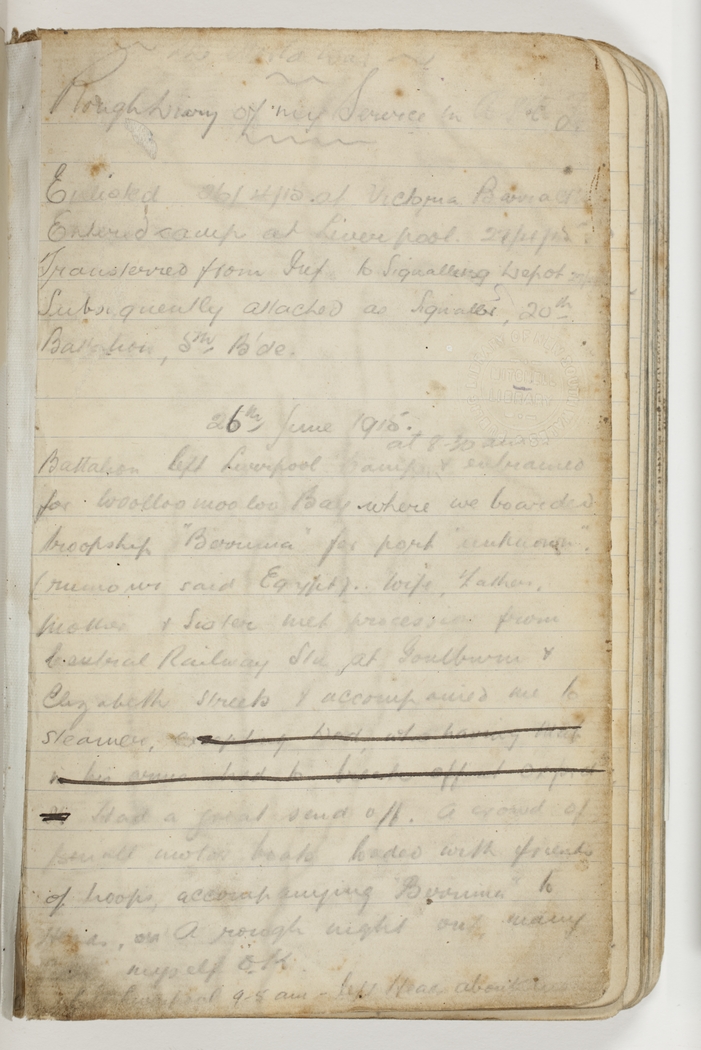 Rough Diary of my Service in A.I.F.
Enlisted 26/4/15 at Victoria Barracks
Entered camp at Liverpool.
Transferred from Inf. to Signalling Depot
Subsequently attached as Signaller, 20th
Battalion, 5th B'de.
26th June 1915.
at 8-30 am
Battalion left Liverpool Camp & entrained
for Woolloomooloo Bay where we boarded
troopship "Berrima" for port "unknown".
(rumours said Egypt). Wife, Father,
Mother & Sister met procession from
Central Railway Stn at Goulburn &
Elizabeth Streets & accompanied me to
steamer,
Had a great send off. A crowd of
small motor boats loaded with friends
of troops, accompanying "Berrima" to
Heads. A rough night out, many
myself OK.
Liverpool 9-5 am - left Heads about